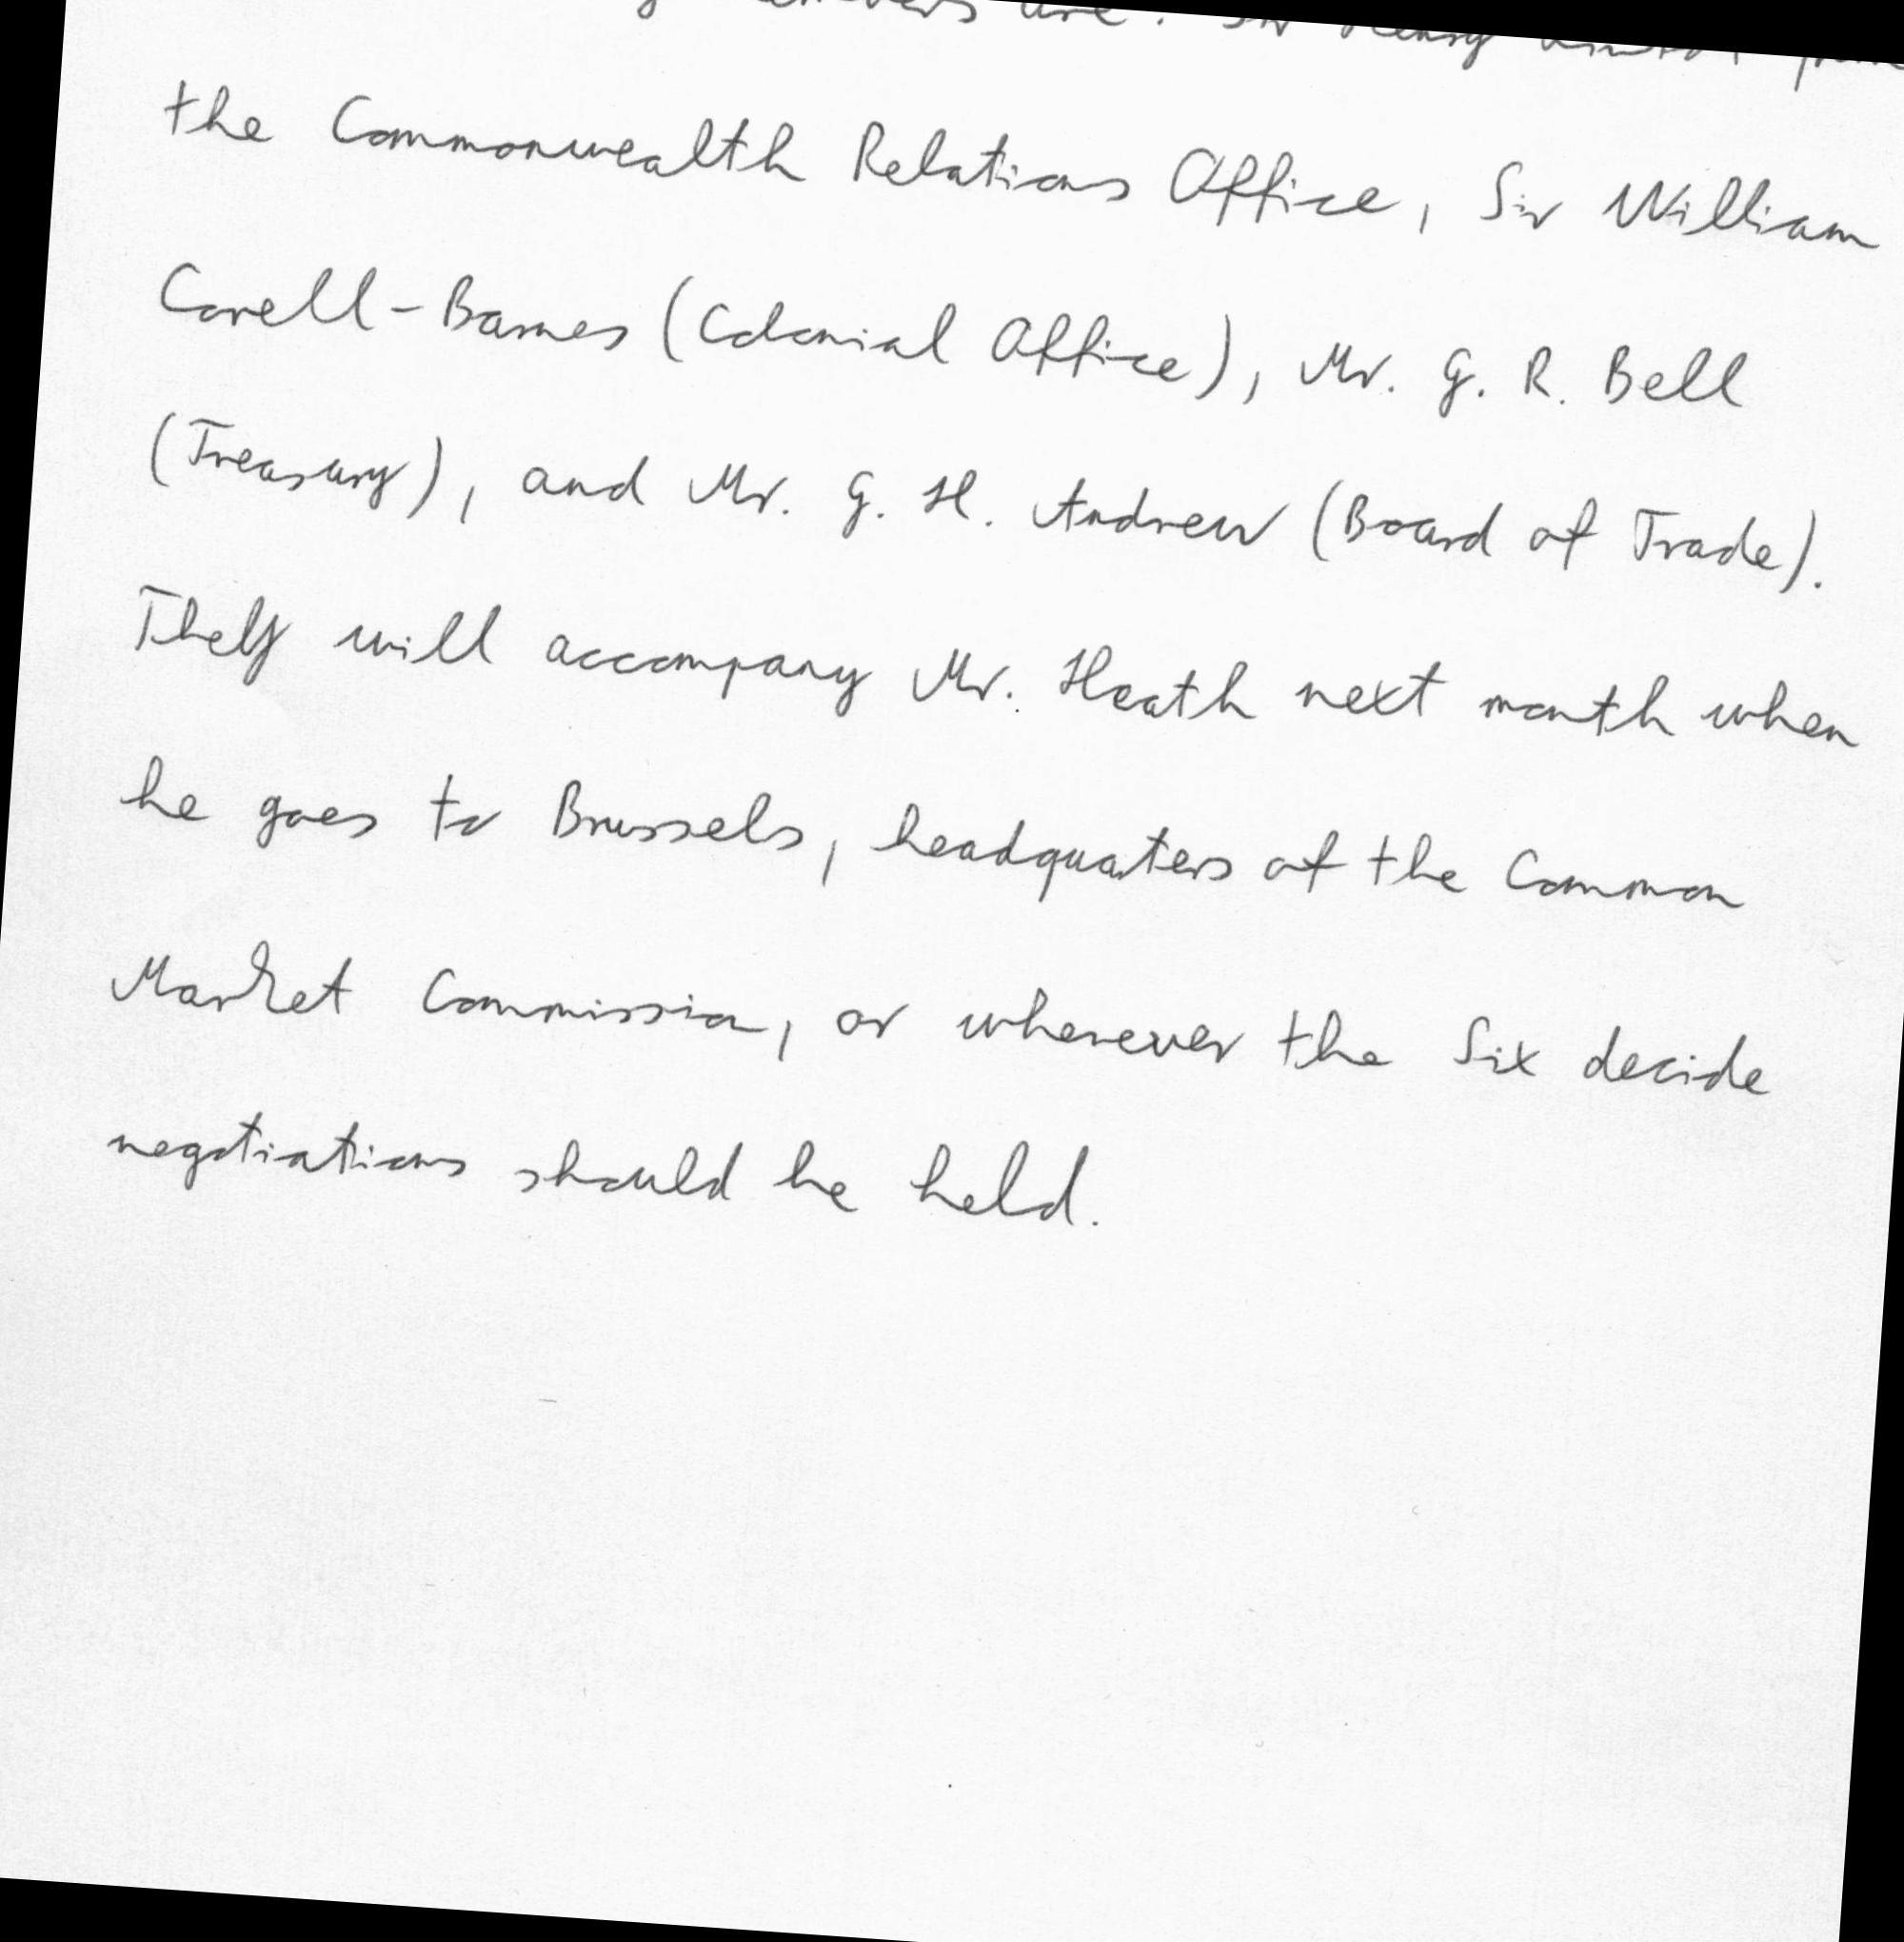 are: Sir Henry
the Commonwealth Relations Office, Sir William
Corell-Barnes (Colonial Office), Mr. G. R. Bell
(Treasury), and Mr. G. H. Andrew (Board of Trade).
They will accompany Mr. Heath next month when
he goes to Brussels, headquaters of the Common
Market Commission, or wherever the Six decide
negotiations should be held.